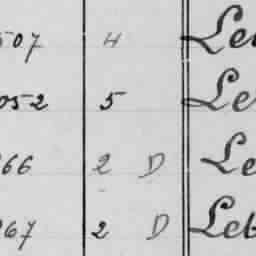 507 4 Le
052 5 Le
66 2 D Le
267 2 D Leb